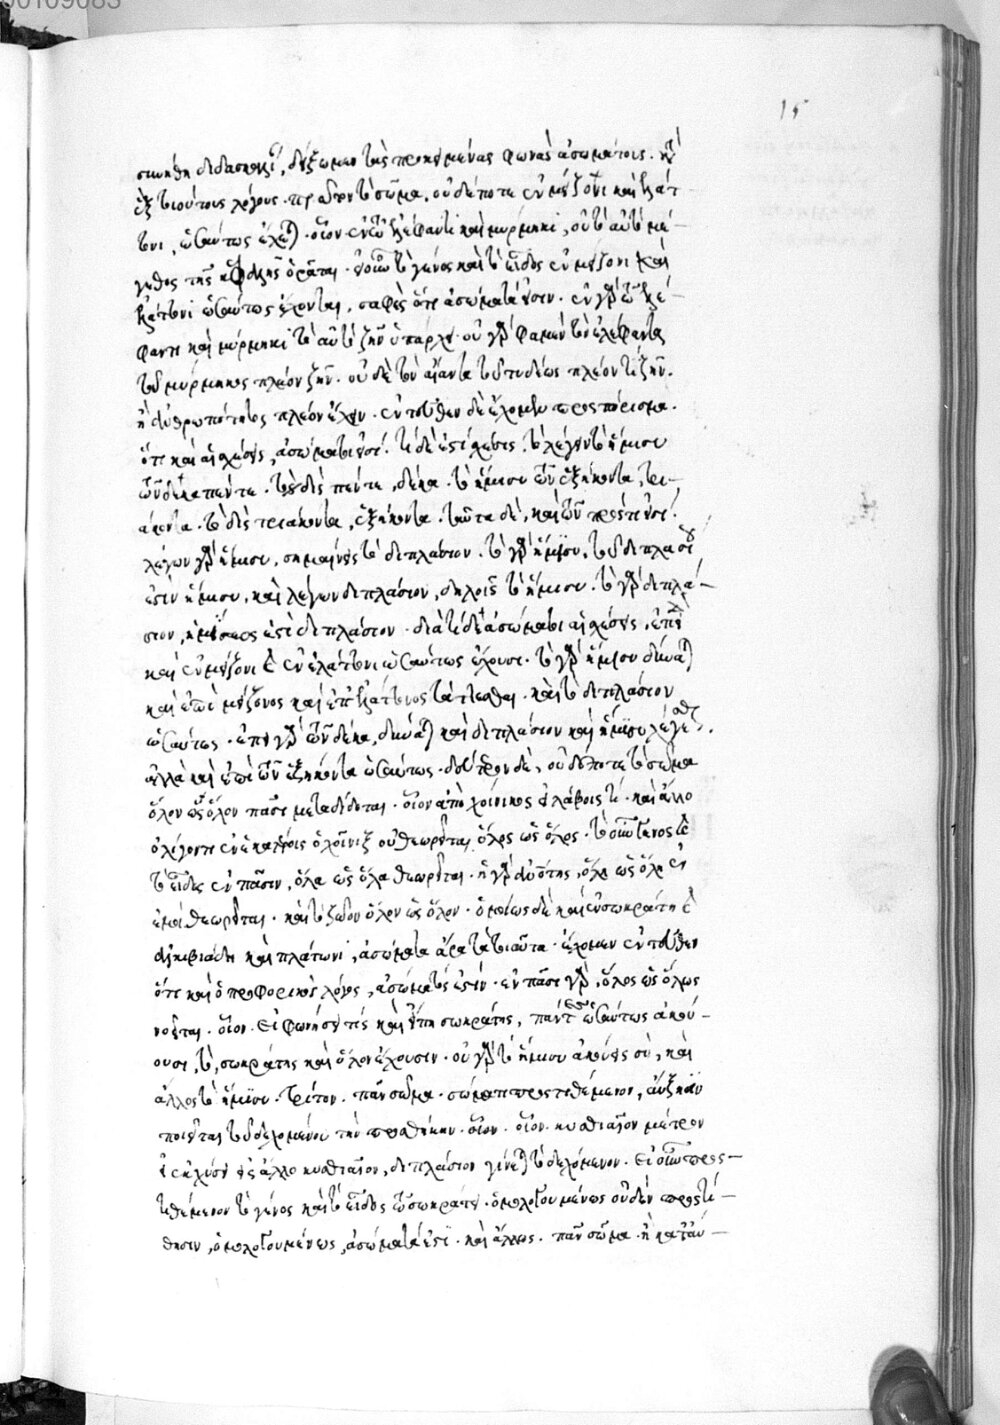 00109083
15
συνήθη διδασκαλί, δείξωμεν τὰς προκειμένας φωνὰς ἀσωμάτους.
ἐξ τοιούτους λόγους· τὸ σῶμα, οὐδέποτε ἐν μείζονι καὶ ἐλάτ-
τονι, ὡσαύτως ἔχει· οἷον ἐν τῷ ἐλέφαντι καὶ μύρμηκι, οὐ τὸ αὐτὸ μέ-
γεθος τῆς κεφαλῆς ὁρᾶται· τὸ γένος καὶ τὸ εἶδος ἐν μείζονι καὶ
ἐλάττονι ὡσαύτως ἔχονται, σαφὲς ὅτι ἀσώματά εἰσιν· ἐν γὰρ τῷ ἐλέ-
φαντι καὶ μύρμηκι τὸ αὐτὸ ζῆν ὑπάρχει· οὐ γὰρ φαμὲν τὸν ἐλέφαντα
τοῦ μύρμηκος πλέον ζῆν· οὐδὲ τὸν αἴαντα τοῦ τυδέως πλέον τι ζῆν.
ἢ ἀνθρωπότητος πλέον ἔχειν· ἐντεῦθεν δὲ ἔχομεν πρὸς πόρισμα.
ὅτι καὶ αἱ σχέσεις, ἀσώματοί εἰσι· τί δέ ἐστι σχέσις· τὸ λέγειν τὸ ἥμισυ
τῶν δέκα πέντε· τὸ δὶς πέντε, δέκα· τὸ ἥμισυ τῶν ἑξήκοντα, τρι-
άκοντα· τὸ δὶς τριάκοντα, ἑξήκοντα· ταῦτα δὲ, καὶ τῶν πρός τί εἰσι.
λέγων γὰρ ἥμισυ, σημαίνεις τὸ διπλάσιον· τὸ γὰρ ἥμισυ, τοῦ διπλασίου
ἐστὶν ἥμισυ, καὶ λέγων διπλάσιον, δηλοῖς τὸ ἥμισυ· τὸ γὰρ διπλά-
σιον, ἡμίσεος ἐστὶ διπλάσιον· διατί δὲ ἀσώματοι αἱ σχέσεις, ἐπεὶ
καὶ ἐν μείζονι καὶ ἐν ἐλάττονι ὡσαύτως ἔχουσι· τὸ γὰρ ἥμισυ δύναται
καὶ ἐπὶ μείζονος καὶ ἐπὶ ἐλάττονος τάττεσθαι· καὶ τὸ διπλάσιον
ὡσαύτως· ἐπὶ γὰρ τῶν δέκα, δύναται καὶ διπλάσιον καὶ ἥμισυ λέγεσθαι.
ἀλλὰ καὶ ἐπὶ τῶν ἑξήκοντα ὡσαύτως· δεύτερον δὲ, οὐδέποτε τὸ σῶμα
ὅλον ὡς ὅλον πᾶσι μεταδίδοται· οἷον ἀπὸ χοίνικος ἐλάβοις τί· καὶ ἄλλο
ὀλίγον τι ἐν ἑκατέροις ὁ χοῖνιξ οὐ θεωρεῖται ὅλος ὡς ὅλος· τὸ γένος καὶ
τὸ εἶδος ἐν πᾶσιν, ὅλα ὡς ὅλα θεωρεῖται· ἡ γὰρ ἀνότης, ὅλη ὡς ὅλη ἐν
ἐμοὶ θεωρεῖται· καὶ τὸ ζῶον ὅλον ὡς ὅλον· ὁμοίως δὲ καὶ ἐν σωκράτη καὶ
ἀλκιβιάδη καὶ πλάτωνι, ἀσώματα ἄρα τὰ τοιαῦτα· ἔχομεν ἐντεῦθεν
ὅτι καὶ ὁ προφορικὸς λόγος, ἀσώματός ἐστιν· ἐν πᾶσι γὰρ, ὅλος ὡς ὅλως
νοεῖται· οἷον· εἰ φωνήσει τίς καὶ εἴπῃ σωκράτης, πάντες ὡσαύτως ἀκού-
ουσι, τὸ, σωκράτης καὶ ὅλον ἔχουσιν· οὐ γὰρ τὸ ἥμισυ ἀκούεις σὺ, καὶ
ἄλλος τὸ ἥμισυ· τρίτον· πᾶν σῶμα· σώματι προστεθέμενον, αὔξησιν
ποιεῖται τοῦ δεχομένου τὴν προσθήκην· οἷον· οἷον· κυαθιαῖον μέτρον
εἰσκλύσει εἰς ἄλλο κυαθιαῖον, διπλάσιον γίνεται τὸ δεχόμενον· εἰ προς-
τιθέμενον τὸ γένος καὶ τὸ εἶδος τῷ σωκράτει· ὁμολογουμένως οὐδὲν προστί-
θησιν, ὁμολογουμένως, ἀσώματά ἐστι· καὶ ἄλλως· πᾶν σῶμα ἢ κατ' αὐ-